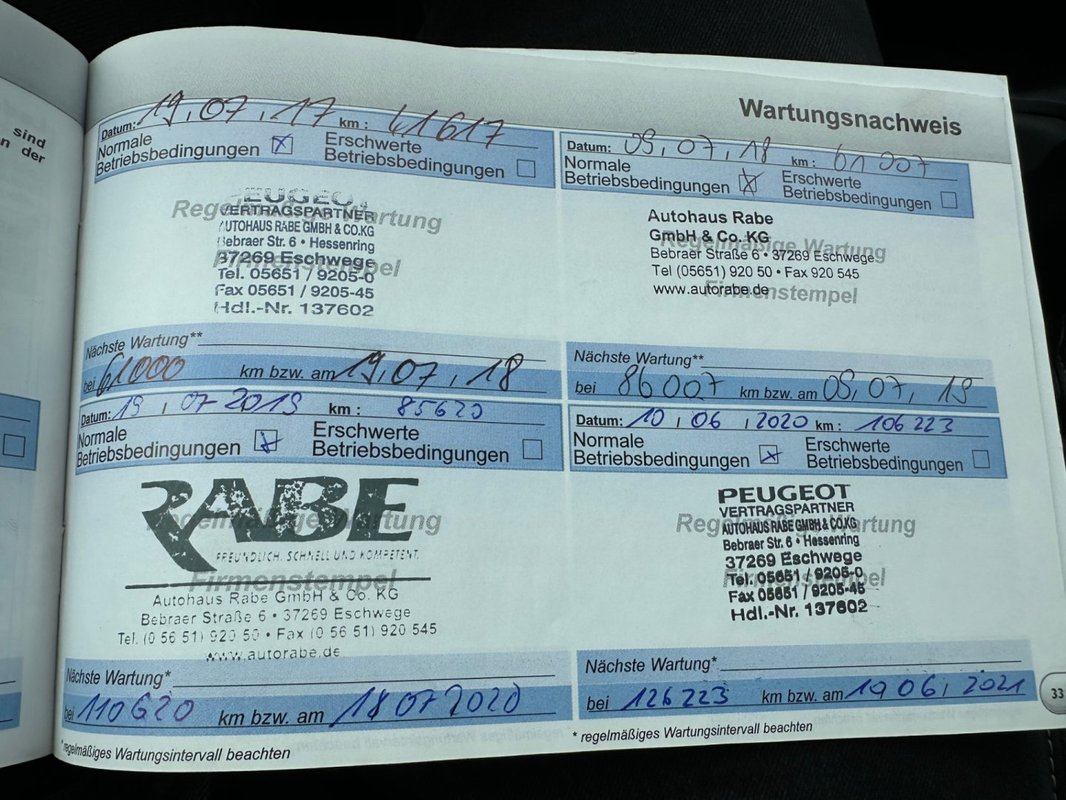 sind
n der
Wartungsnachweis
Datum: 19.07.17 km: 41617
Normale Betriebsbedingungen Erschwerte Betriebsbedingungen
EUGEOT
VERTRAGSPARTNER
AUTOHAUS RABE GMBH & CO.KG
Bebraer Str. 6 • Hessenring
37269 Eschwege
Tel. 05651 / 9205-0
Fax 05651 / 9205-45
Hdl.-Nr. 137602
Regelmäßige Wartung
Firmenstempel
Nächste Wartung**
bei 61000 km bzw. am 19.07.18
Datum: 09.07.18 km: 61007
Normale Betriebsbedingungen Erschwerte Betriebsbedingungen
Autohaus Rabe
GmbH & Co. KG
Bebraer Straße 6 • 37269 Eschwege
Tel (05651) 920 50 • Fax 920 545
www.autorabe.de
Regelmäßige Wartung
Firmenstempel
Nächste Wartung**
bei 86007 km bzw. am 09.07.19
Datum: 19.07 2019 km: 85620
Normale Betriebsbedingungen Erschwerte Betriebsbedingungen
RABE
FREUNDLICH. SCHNELL UND KOMPETENT.
Autohaus Rabe GmbH & Co. KG
Bebraer Straße 6 • 37269 Eschwege
Tel. (0 56 51) 920 50 • Fax (0 56 51) 920 545
www.autorabe.de
Regelmäßige Wartung
Firmenstempel
Nächste Wartung*
bei 110620 km bzw. am 18 07 2020
* regelmäßiges Wartungsintervall beachten
Datum: 10.06.2020 km: 106223
Normale Betriebsbedingungen Erschwerte Betriebsbedingungen
PEUGEOT
VERTRAGSPARTNER
AUTOHAUS RABE GMBH & CO.KG
Bebraer Str. 6 • Hessenring
37269 Eschwege
Tel. 05651 / 9205-0
Fax 05651 / 9205-45
Hdl.-Nr. 137602
Regelmäßige Wartung
Firmenstempel
Nächste Wartung*
bei 126223 km bzw. am 19 06, 2021
* regelmäßiges Wartungsintervall beachten
33